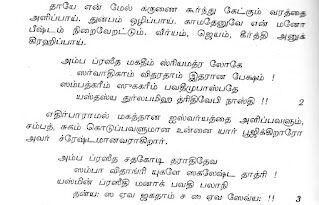 தாயே என் மேல் கருணை கூர்ந்து கேட்கும் வரத்தை
அளிப்பாய். துன்பம் ஒழிப்பாய். காமதேனுவே என் மனோ
பீஷ்டம் நிறைவேறட்டும். வீர்யம், ஜெயம், கீர்த்தி அனுக்
கிரஹிப்பாய்.
அம்ப ப்ரஸீத மகதீம் ஸ்ரியமத்ர லோகே
ஸர்வாதிகாம் விதரதாம் இதரான பேக்ஷம் !
ஸம்பத்கரீம் ஸுககரீம் பவதீமுபாஸ்தே
யஸ்தஸ்ய துர்லபமிஹ த்ரிதிவேபி நாஸ்தி !! 2
எதிர்பாராமல் மகத்தான ஐஸ்வர்யத்தை அளிப்பவளும்,
சம்பத், சுகம் கொடுப்பவளுமான உன்னை யார் பூஜிக்கிறாரோ
அவர் ச்ரேஷ்டமானவராகிறார்.
அம்ப ப்ரஸீத சதகோடி தராதிதேவ
ஸம்பா விதாங்ரி யுகளே ஸகலேஷ்ட தாத்ரி !
யஸ்மின் ப்ரஸீதி மனாக் பவதி பலாநி
தன்ய: ஸ ஏவ ஜகதாம் ச ஸ ஏவ ஸேவ்ய: !! 3